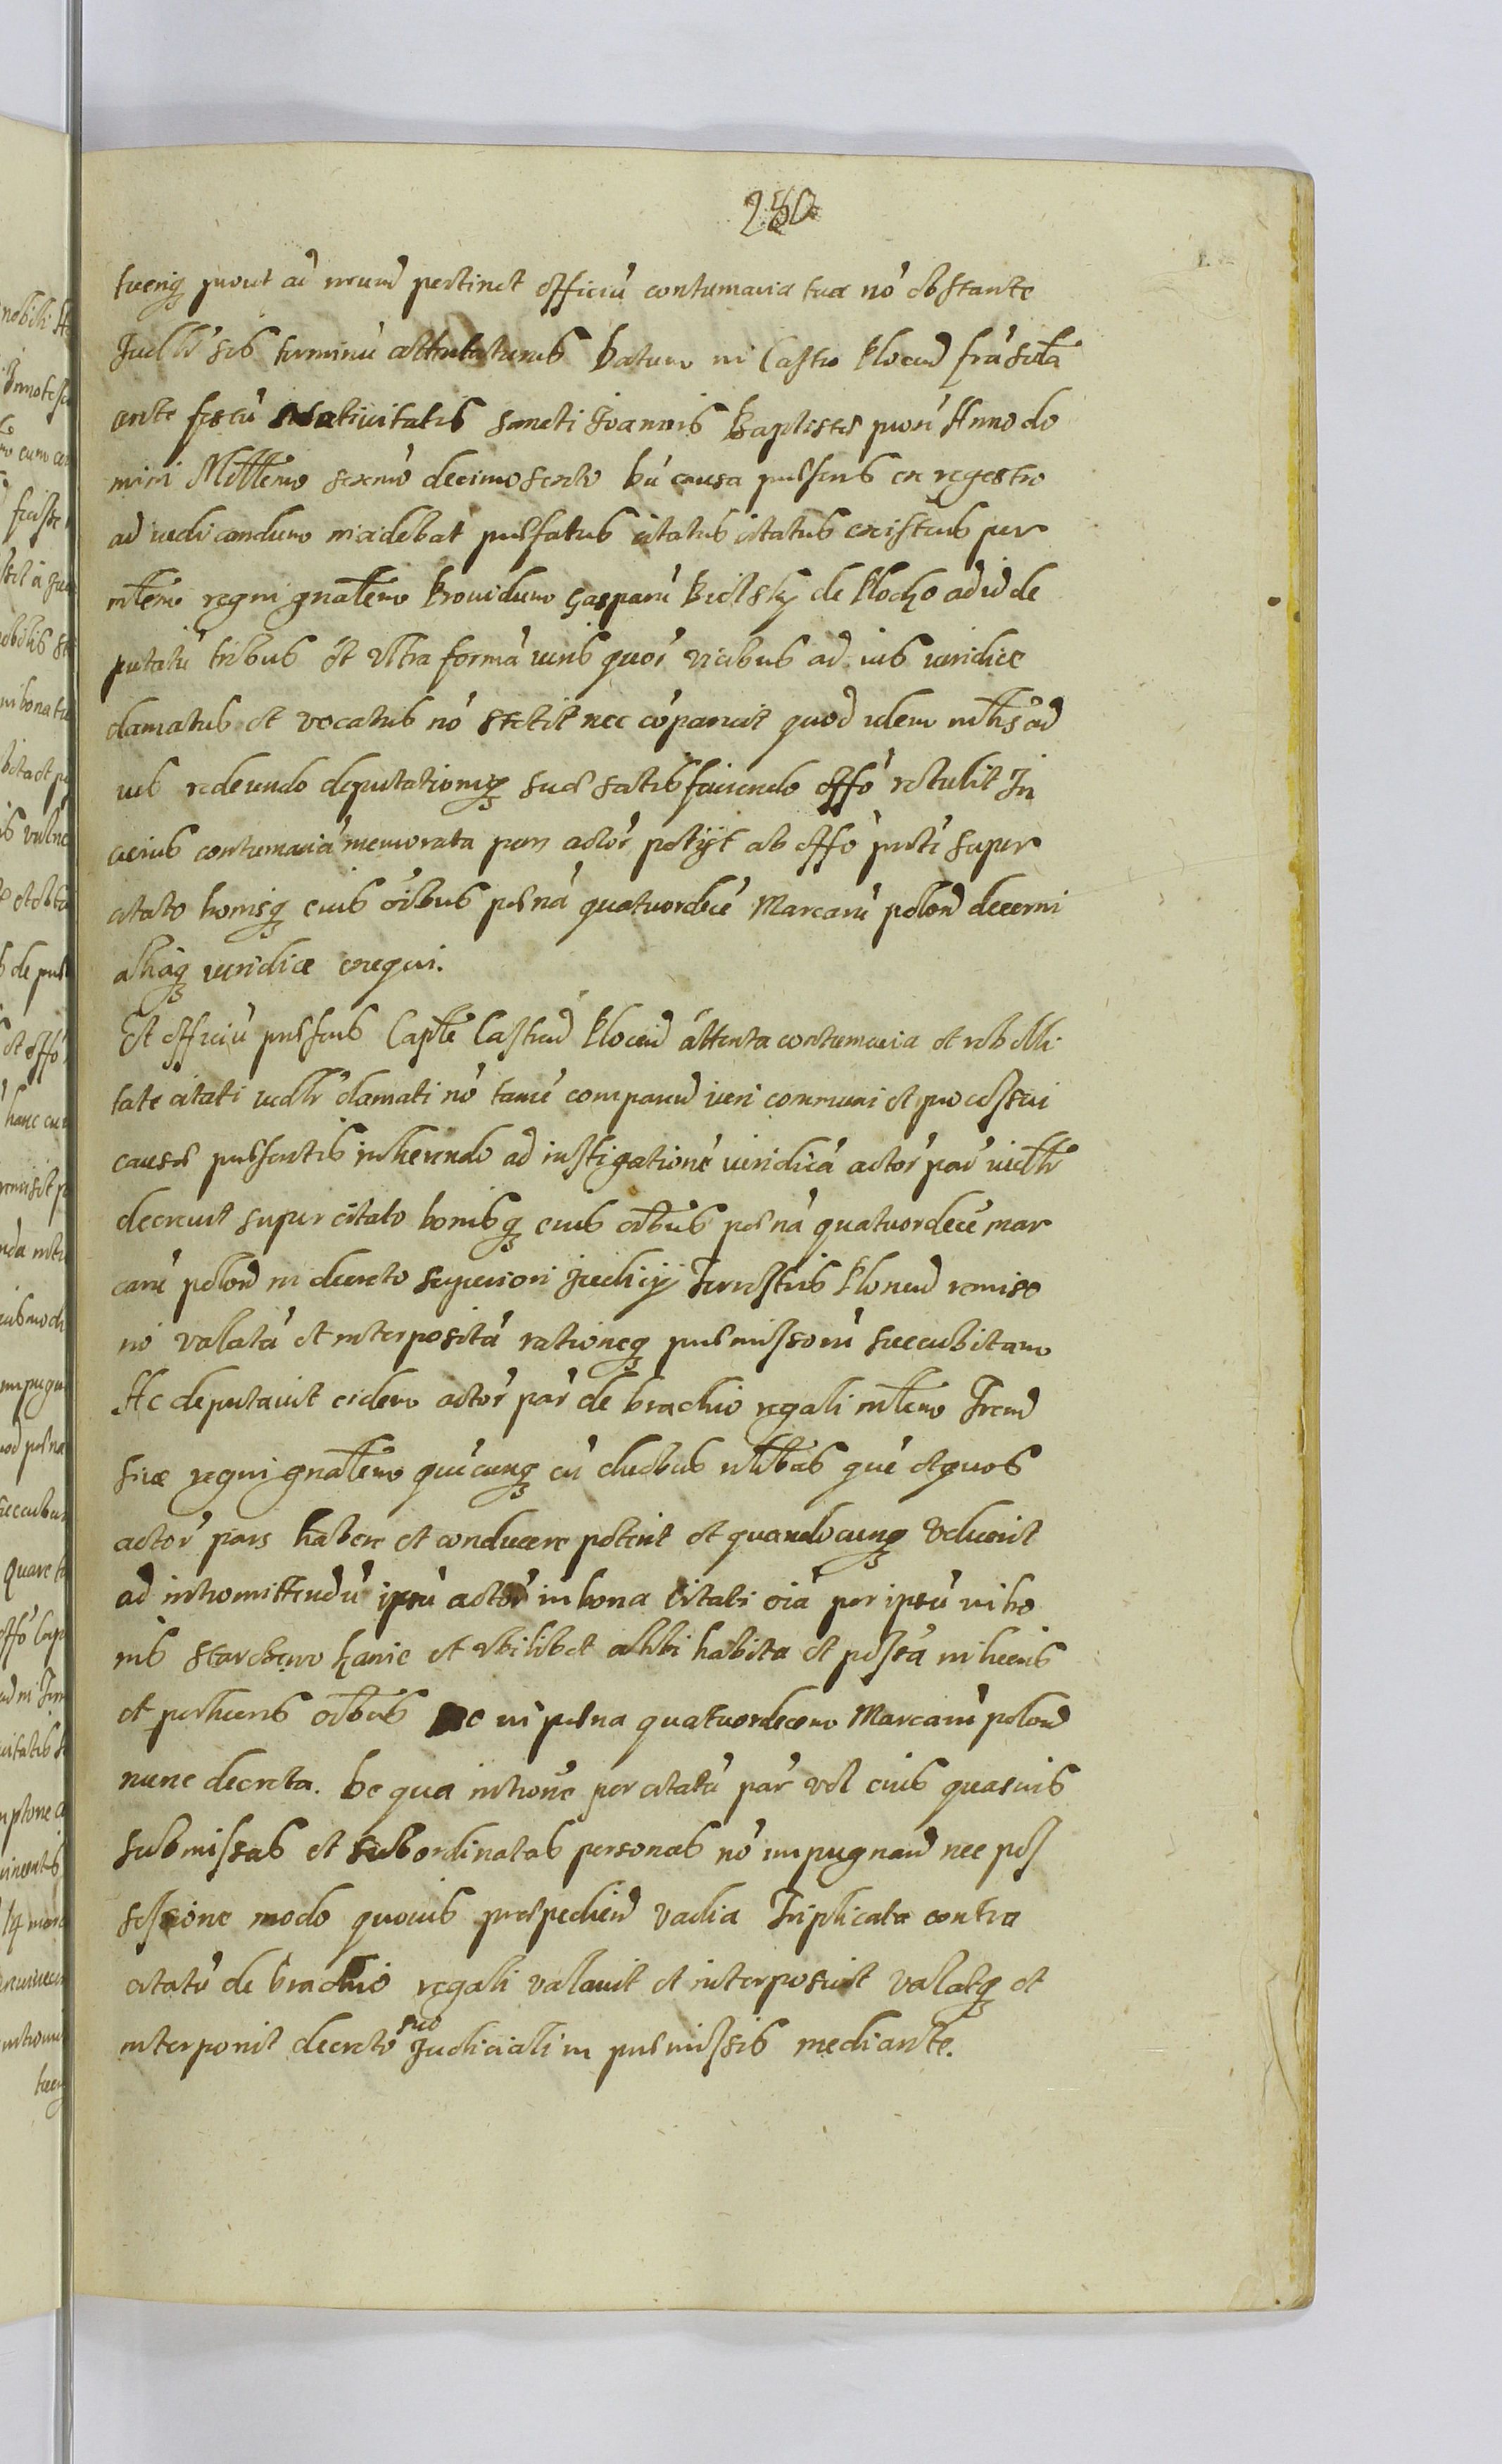 280
tuenq prout ad meum pertinet officiu contumacia tua no obstante
Judltr sis terminu attentaturus Datum in Castro Plocen fria scda
ante festu Natiuitatis Sancti Joannis Baptistae prori Anno do
mini Milltemo sexmo decimo sexto Du causa presens ex regestro
ad iudicandum incidebat prefatus citatus citatus existens per
mltem regni gnalem Prouidum Gasparu Bielsky de Plocko ad id de
putatu tribus et vltra forma iuris quor vicibus ad ius iuridice
clamatus et vocatus no stetit nec coparuit quod idem mltis ad
ius redeundo deputationiq suae satisfaciendo offo retulit In
cuius contumacia memorata pars actor petijt ab offo pnti super
citato bonisq eius oibus poena quatuordece Marcaru polon decerni
aliaq iuridice exequi.
Et officiu presens Captle Castren Plocen attenta contumacia et rebelli
tate citati iudltr clamati no tame comparen iuri communi et processui
causae presentis inherendo ad instigatione iuridica actor par iudltr
decreuit super citato bonisq eius oibus poena quatuordece mar
caru polon in decreto superiori Judicij Terrestris Plocen remisso
no valata et interposita rationeq praemissoru succubitam
Ac deputauit eidem actor par de brachio regali mltem Tren
siue regni gnalem quecunq cu duobus nlibus que et quos
actor pars habere et conducere poterit et quandocunq voluerit
ad intromittendu ipsu actor in bona Citati oia per ipsu in bo
nis et vbilibet alibi habita et possa inheren
et pertinens oibus in poena quatuordecem Marcaru polon
nunc decreta. De qua introne per citatu par vel eius quasuis
submissas et subordinatas personas no impugnan nec pos
sessione modo quouis prepedien vadia Triplicata contra
citatu de brachio regali valauit et interposuit valatq et
interponit decreto suo Judiciali in praemissis mediante.